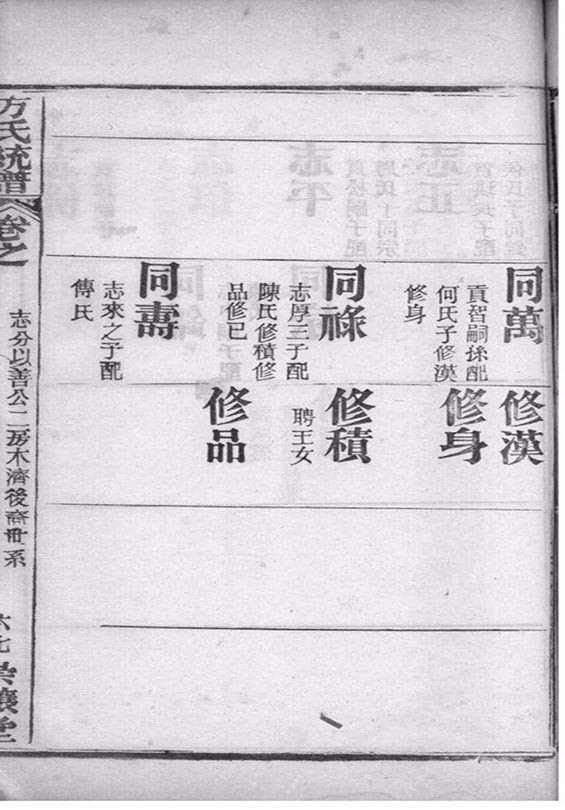 同萬
貢智嗣孫配
何氏子修漢
修身
同祿
志厚三子配
陳氏修積修
品修已
同壽
志來之子配
傅氏
修漢
修身
修積
聘王女
修品
方氏統譜
卷之
志分以善公二房木濟後裔世系
六七